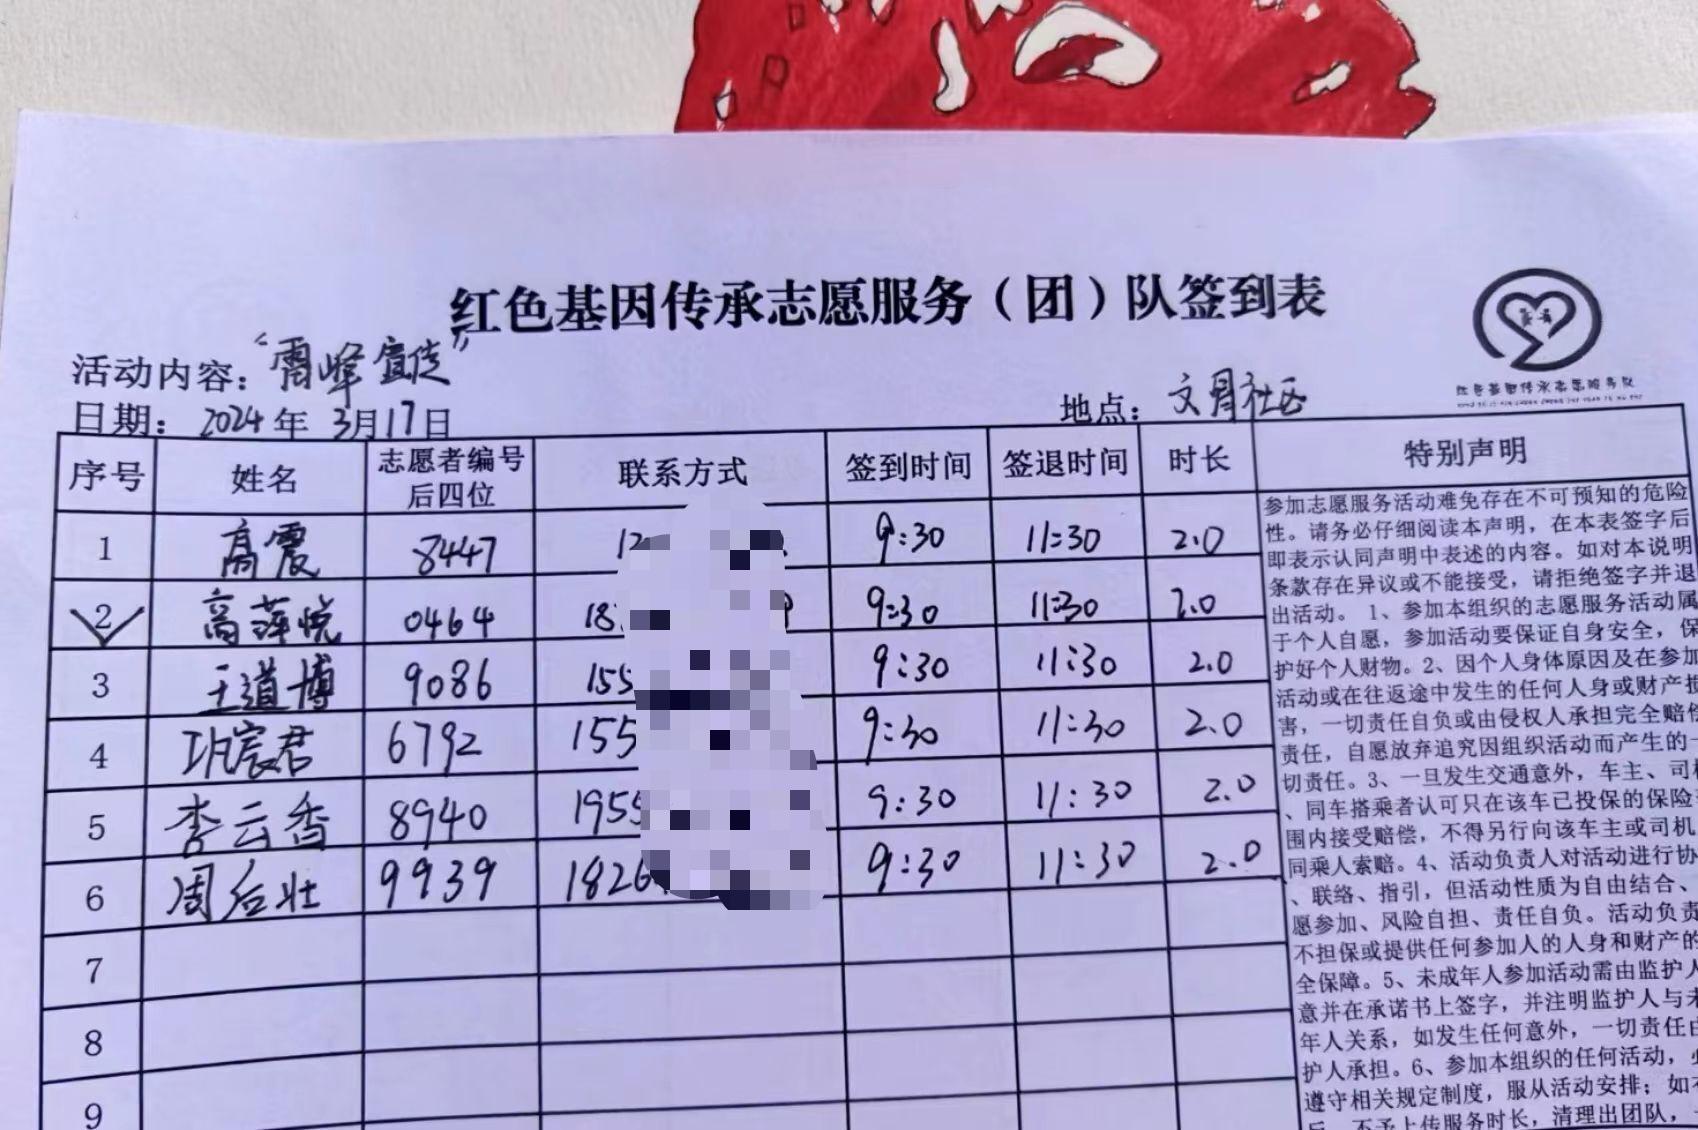 红色基因传承志愿服务（团）队签到表
活动内容：“雷峰宣传”
日期：2024年 3月17日
地点：
社区
序号 姓名 志愿者编号后四位 联系方式 签到时间 签退时间 时长 特别声明
1 高震 8447 9:30 11:30 2.0
2 高萍悦 0464 18 9:30 11:30 2.0
3 王道博 9086 155 9:30 11:30 2.0
4 宸君 6792 155 9:30 11:30 2.0
5 李云香 8940 1955 9:30 11:30 2.0
6 周后壮 9939 1826 9:30 11:30 2.0
7
8
9
参加志愿服务活动难免存在不可预知的危险
性。请务必仔细阅读本声明，在本表签字后
即表示认同声明中表述的内容。如对本说明
条款存在异议或不能接受，请拒绝签字并退
出活动。1、参加本组织的志愿服务活动属
于个人自愿，参加活动要保证自身安全，保
护好个人财物。2、因个人身体原因及在参加
活动或在往返途中发生的任何人身或财产损
害，一切责任自负或由侵权人承担完全赔偿
责任，自愿放弃追究因组织活动而产生的一
切责任。3、一旦发生交通意外，车主、司机
、同车搭乘者认可只在该车已投保的保险
围内接受赔偿，不得另行向该车主或司机
同乘人索赔。4、活动负责人对活动进行协
、联络、指引，但活动性质为自由结合、
愿参加、风险自担、责任自负。活动负责
不担保或提供任何参加人的人身和财产的
全保障。5、未成年人参加活动需由监护人
意并在承诺书上签字，并注明监护人与未
年人关系，如发生任何意外，一切责任由
护人承担。6、参加本组织的任何活动，必
遵守相关规定制度，服从活动安排；如不
不予上传服务时长，清理出团队，